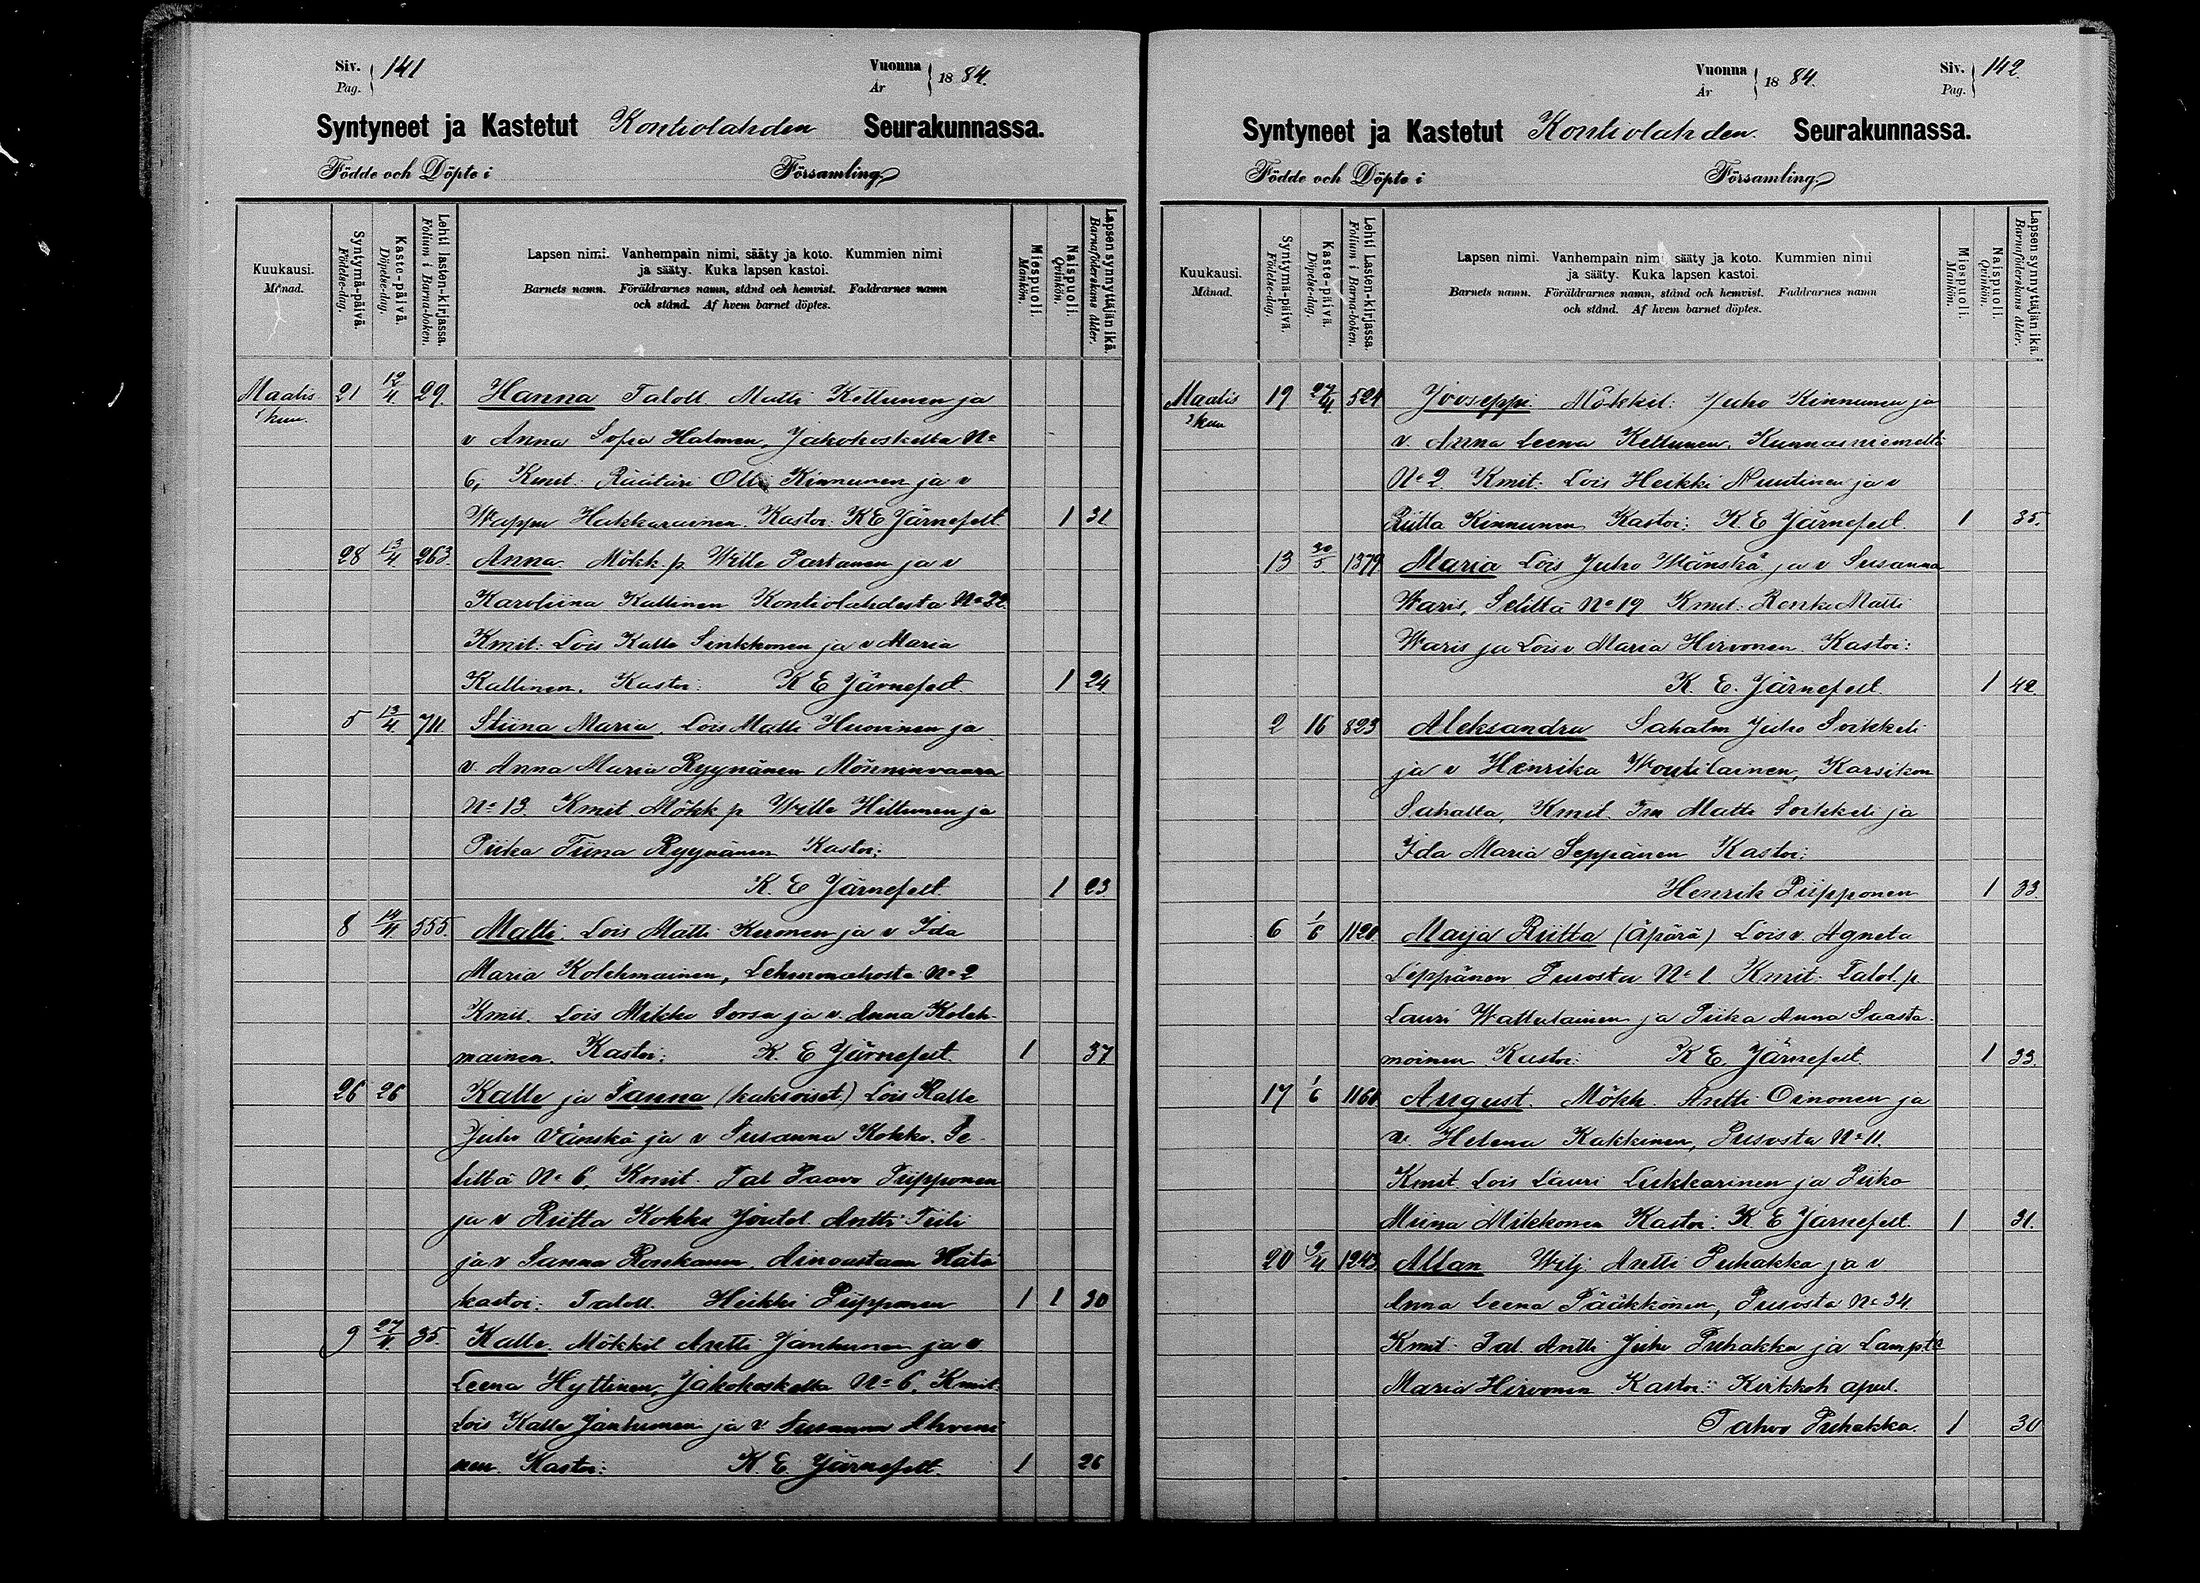 Siv. 141 Vuonna 1884.
Pag. År
Syntyneet ja Kastetut Kontiolahden Seurakunnassa.
Födde och Döpte i Församling
Kuukausi. Månad.
Syntymä-päivä. Födelse-dag.
Kasto-päivä. Döpelse-dag.
Lehti lasten-kirjassa. Folium i Barna-boken.
Lapsen nimi. Vanhempain nimi, sääty ja koto. Kummien nimi
ja sääty. Kuka lapsen kastoi.
Barnets namn. Föräldrarnes namn, stånd och hemvist. Faddrarnes namn
och stånd. Af hvem barnet döptes.
Miespuoli. Mankön.
Naispuoli. Qvinkön.
Lapsen synnyttäjän ikä. Barnaföderskans ålder.
Maalis 21 12/4. 29. Hanna Taloll Matti Kettunen ja
kuu. v Anna Sofia Halmen, Jakokoskelta No
6, Kmit. Räätäri Olli Kinnunen ja v
Wappu Hakkarainen. Kastoi: K E Järnefelt 1 31
28 13/4. 263. Anna. Mökk. p. Wille Partanen ja v
Karoliina Kallinen Kontiolahdesta No 22.
Kmit: Lois Kalle Sinkkonen ja v Maria
Kallinen. Kastoi: K E Järnefelt 1 24
5 13/4. 711. Stiina Maria. Lois Matti Huovinen ja
v. Anna Maria Ryynänen Mönninvaara
No 13. Kmit Mökk p Wille Hiltunen ja
Piika Tiina Ryynänen Kastoi:
K. E Järnefelt. 1 23.
8 14/4 555. Matti. Lois Matti Keronen ja v Ida
Maria Kolehmainen, Lehmonahosta No 2
Kmit. Lois Mikko Sorsa ja v. Anna Koleh-
mainen. Kastoi: K. E Järnefelt. 1 37
26 26 Kalle ja Sanna (kaksoiset.) Lois Kalle
Juho Vänskä ja v Susanna Kokko. Se-
liltä No 6, Kmit. Tal Paavo Piipponen
ja v Riitta Kokko Joutol. Antti Tiili
ja v Sanna Ronkanen. Ainoastaan Hätä
kastoi: Taloll. Heikki Piipponen 1 1 30
9 27/4. 35. Kalle. Mökkil Antti Janhunen ja v
Leena Hyttinen, Jakokoskelta No 6. Kmit.
Lois Kalle Janhunen ja v Susanna Ahveni
nen. Kastoi: K. E Järnefelt. 1 26
Vuonna 1884. Siv. 142.
År Pag.
Syntyneet ja Kastetut Kontiolahden. Seurakunnassa.
Födde och Döpte i Församling
Kuukausi. Månad.
Syntymä-päivä. Födelse-dag.
Kaste-päivä. Döpelse-dag.
Lehti Lasten-kirjassa. Folium i Barna-boken.
Lapsen nimi. Vanhempain nimi, sääty ja koto. Kummien nimi
ja sääty. Kuka lapsen kastoi.
Barnets namn. Föräldrarnes namn, stånd och hemvist. Faddrarnes namn
och stånd. Af hvem barnet döptes.
Miespuoli. Mankön.
Naispuoli. Qvinkön.
Lapsen synnyttäjän ikä. Barnaföderskans ålder.
Maalis 19 27/4 524 Jooseppi Mökkil: Juho Kinnunen ja
kuu v. Anna Leena Kettunen, Kunnasniemeltä
No 2. Kmit: Lois Heikki Nuutinen ja v
Riitta Kinnunen Kastoi: K. E Järnefelt. 1 35.
13 30/5. 1379 Maria Lois Juho Wänskä ja v Susanna
Waris, Seliltä No 19 Kmit: Renki Matti
Waris ja Lois v. Maria Hirvonen Kastoi:
K. E. Järnefelt. 1 42.
2 16 823 Aleksandra Sahatm Juho Soikkeli
ja v Henrika Woutilainen, Karsikon
Sahalta, Kmit. Matti Soikkeli ja
Ida Maria Seppänen Kastoi:
Henrik Piipponen 1 33.
6 1/6 1120 Marja Riitta (äpärä) Lois v. Agneta
Leppänen Pusosta No 1. Kmit: Talol. p.
Lauri Wattulainen ja Piika Anna Saasta-
moinen Kastoi: K E. Järnefelt. 1 33.
17 1/6 1160 August. Mökk. Antti Oinonen ja
v. Helena Kakkinen, Pusosta No 11.
Kmit Lois Lauri Lukkarinen ja Piika
Miina Mikkonen Kastoi: K E Järnefelt. 1 31.
20 9/4. 1243. Allan Wilj Antti Puhakka ja v
Anna Leena Pääkkönen, Pusosta No 34.
Kmit: Tal. Antti Juho Puhakka ja Lampta
Maria Hirvonen Kastoi: Kirkkoh apul.
Tahvo Puhakka. 1 30